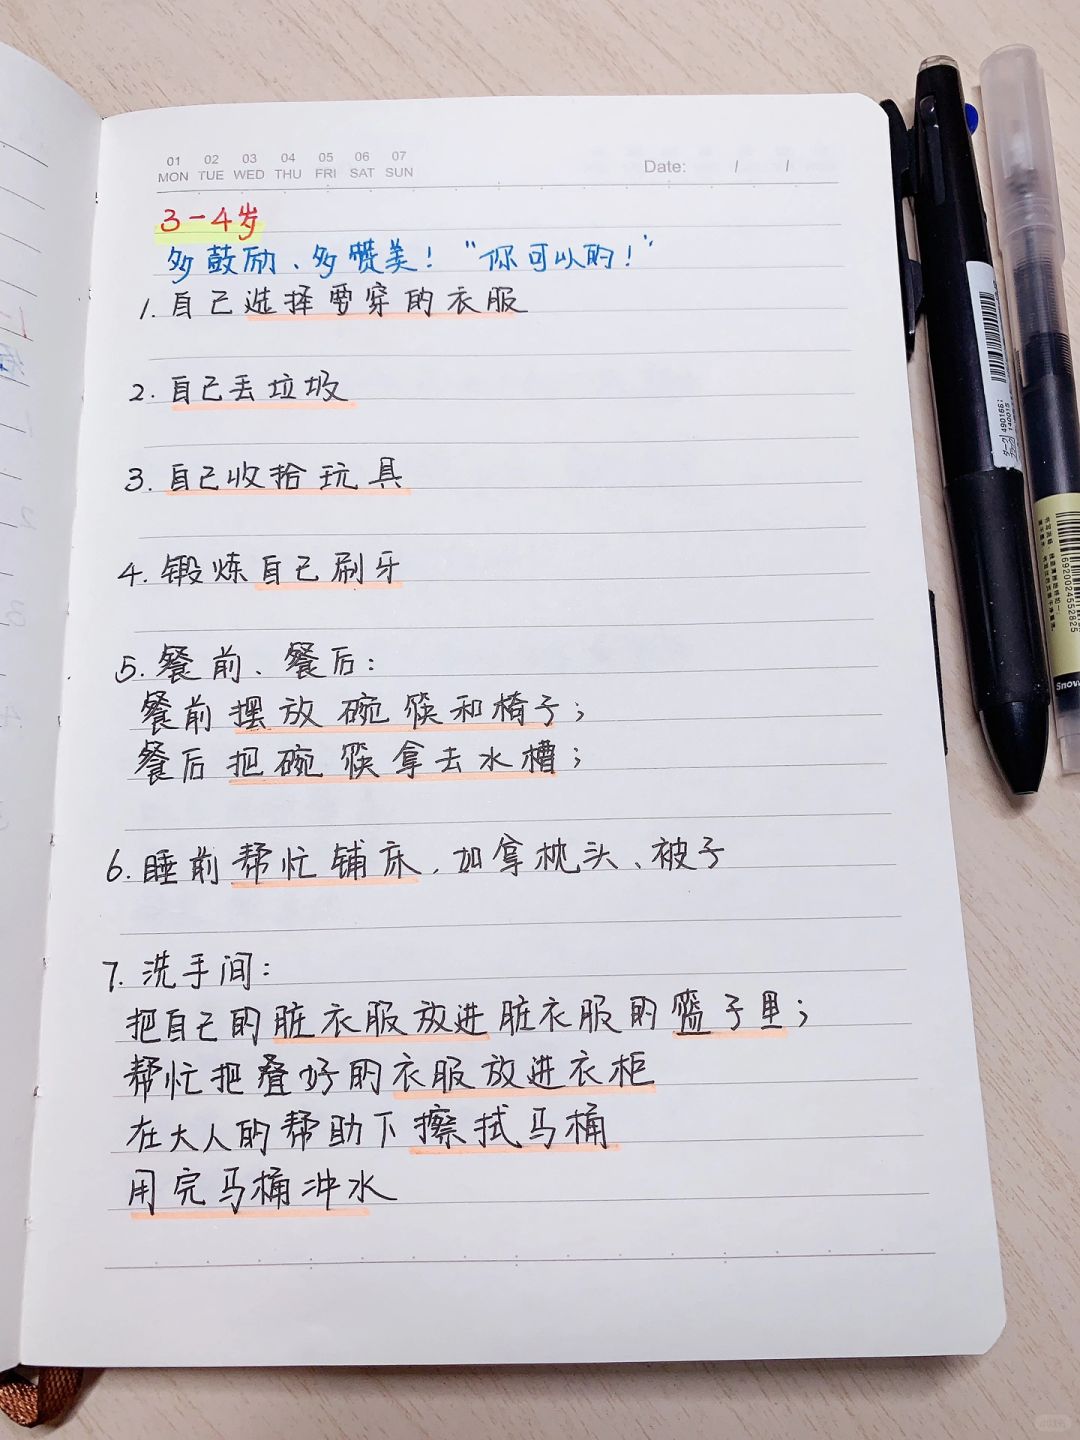 01 02 03 04 05 06 07
MON TUE WED THU FRI SAT SUN
Date: / /
3-4岁
多鼓励、多赞美！“你可以的！”
1.自己选择要穿的衣服
2.自己丢垃圾
3.自己收拾玩具
4.锻炼自己刷牙
5.餐前、餐后：
餐前摆放碗筷和椅子；
餐后把碗筷拿去水槽；
6.睡前帮忙铺床，如拿枕头、被子
7.洗手间：
把自己的脏衣服放进脏衣服的篮子里；
帮忙把叠好的衣服放进衣柜
在大人的帮助下擦拭马桶
用完马桶冲水
490166
140015
6920024552825
Snow